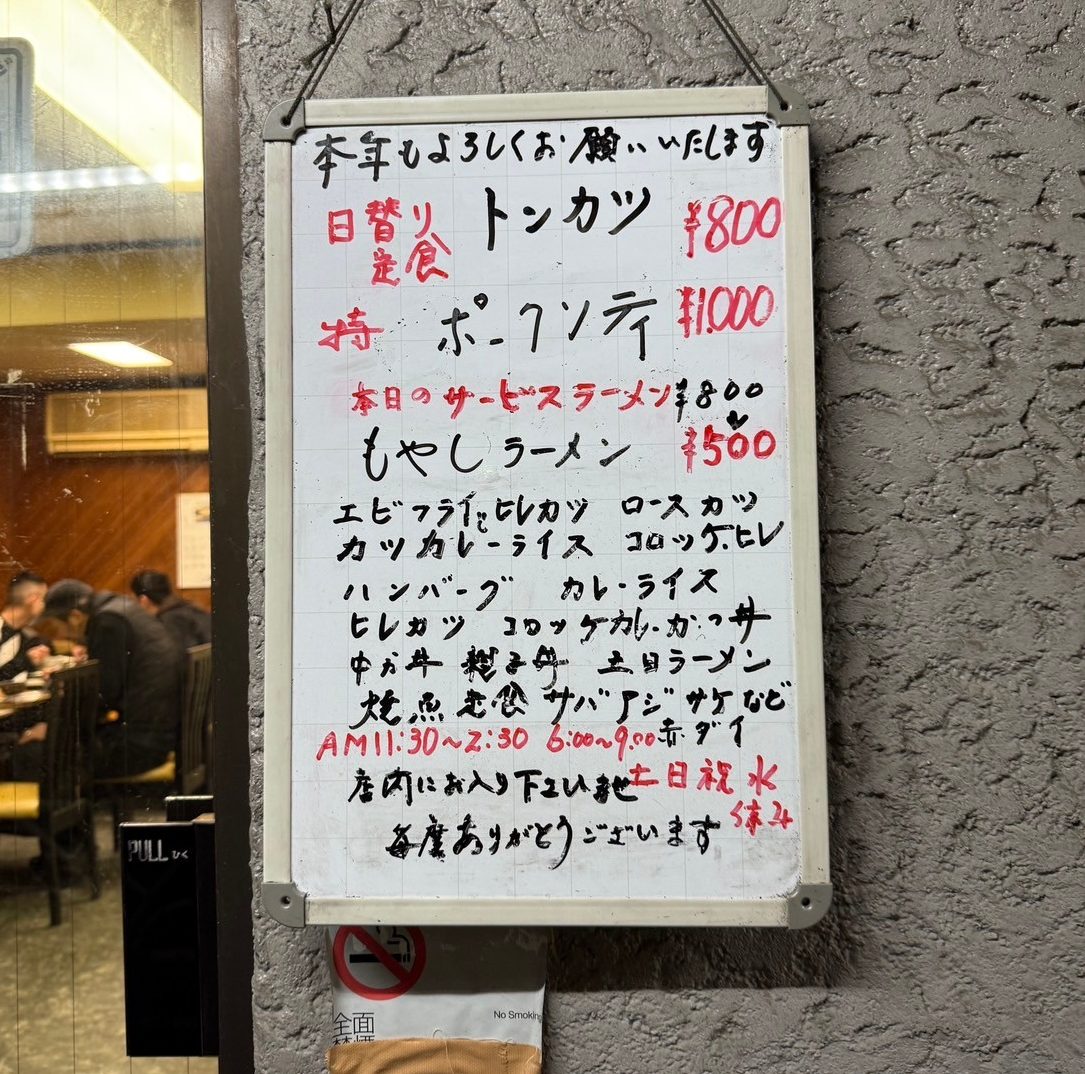 本年もよろしくお願いいたします
日替り定食 トンカツ ¥800
特 ポークソティ ¥1.000
本日のサービスラーメン ¥800
もやしラーメン ¥500
エビフライとヒレカツ ロースカツ
カツカレーライス コロッケ.ヒレ
ハンバーグ カレーライス
ヒレカツ コロッケカレー かつ丼
中カ丼 親子丼 土日ラーメン
焼魚定食 サバ アジ サケなど
AM11:30〜2:30 6:00〜9:00 赤ダイ
店内にお入り下さいませ 土日祝 水
休み
毎度ありがとうございます
PULL ひく
No Smoking
全面
禁煙